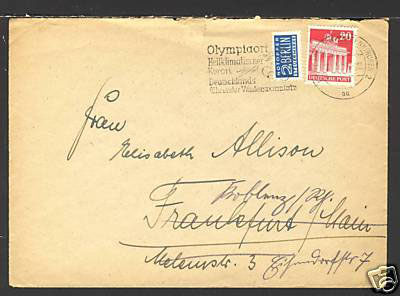 Olympiaort
Heilklimatischer
Kurort
Deutschlands
führender Wintersportplatz
NOTOPFER
2 BERLIN
STEUERMARKE
20
DEUTSCHE POST
Frau
Elisabeth Allison
Koblenz/Rh.
Frankfurt/Main
Metemstr. 3 Eichendorffstr 7
eBay